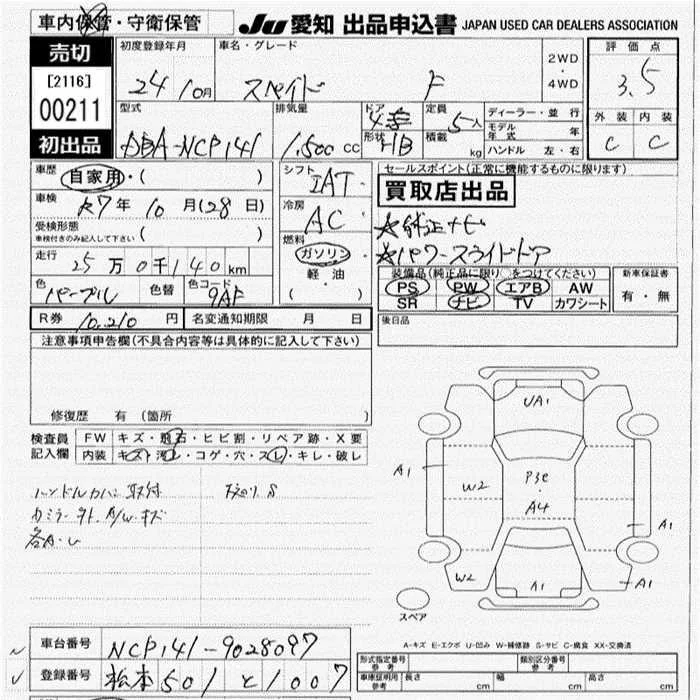 車内保管・守衛保管
JU 愛知 出品申込書 JAPAN USED CAR DEALERS ASSOCIATION
売切
[2116]
00211
初出品
初度登録年月 車名・グレード 2WD・4WD
24年10月 スペイド F
評価点
3.5
外装 内装
C C
型式 排気量 ドア形状 定員積載 ディーラー・並行
DBA-NCP141 1,500cc 4 HB 5人 kg
モデル年式 年
ハンドル 左・右
車歴 自家用・( )
車検 R7年10月(28日)
受検形態 ( )
車検付きのみ記入して下さい
走行 25万0千140km
色 パープル 色替 色コード 9AF
シフト IAT
冷房 AC
燃料 ガソリン・軽油
( ・ )
セールスポイント(正常に機能するものに限ります)
買取店出品
☆純正ナビ
☆パワースライドドア
装備品(純正品に限り○をつけてください) 新車保証書
PS PW エアB AW 有・無
SR ナビ TV カワシート
R券 10,210円 名変通知期限 月 日
後日品
注意事項申告欄(不具合内容等は具体的に記入して下さい)
修復歴 有 (箇所 )
検査員記入欄 FW キズ・飛石・ヒビ割・リペア跡・X要
内装 キズ・汚レ・コゲ・穴・スレ・キレ・破レ
ハンドルカバー取付
カミラー外、A/Wキズ
各A・U
UA1
A1
W2
P3e
A4
A1
W2
A1
A1
スペア
A-キズ E-エクボ U-凹み W-補修跡 S-サビ C-腐食 XX-交換済
車台番号 NCP141-9028097
登録番号 松本501と1007
形式指定番号参考 類別区分番号参考
車庫証明用参考 長さ cm 幅 cm 高さ cm